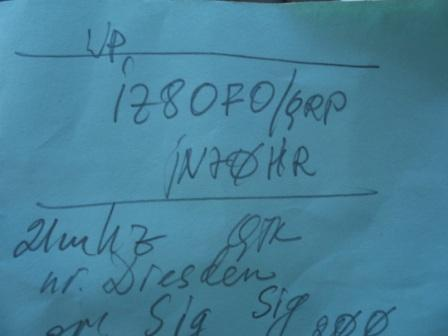 UP
iZ8OFO/QRP
jN70HR
21mhz QTH
nr. Dresden
Sig Sig